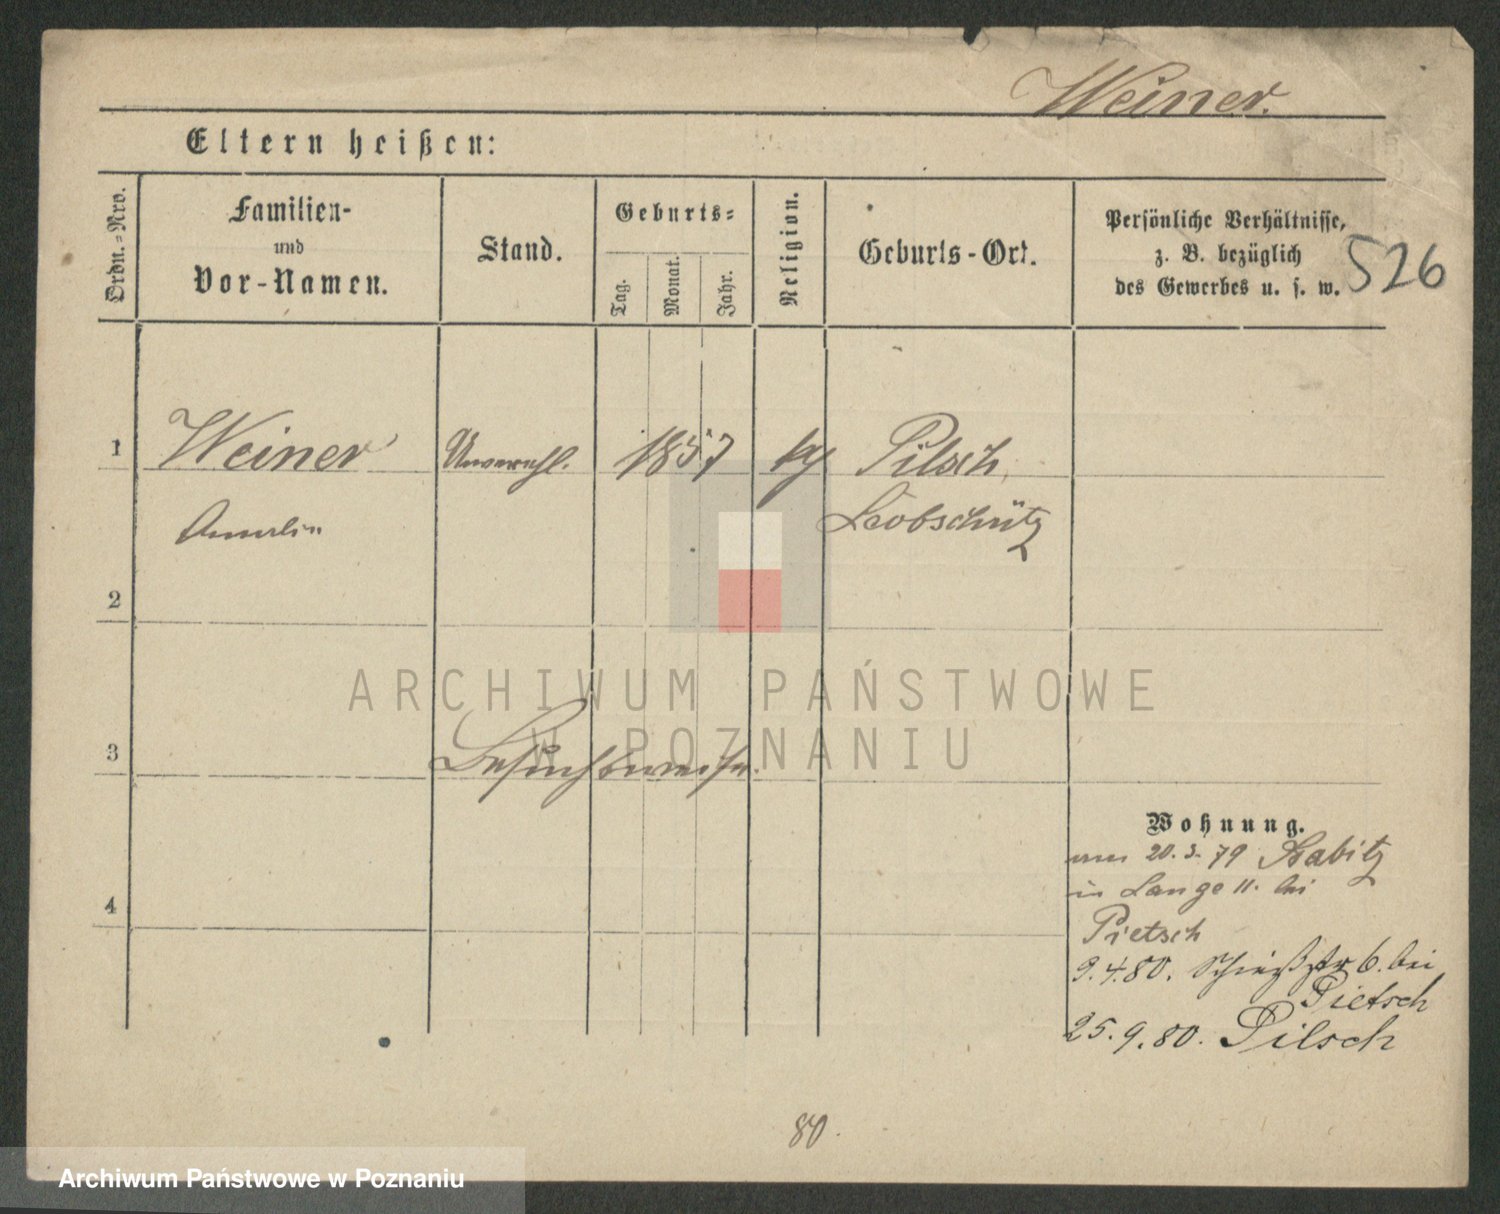 Weiner.
Eltern heißen:
Ordn.-Nro.
Familien-
und
Vor-Namen.
Stand.
Geburts-
Tag.
Monat.
Jahr.
Religion.
Geburts-Ort.
Persönliche Verhältnisse,
z. B. bezüglich
des Gewerbes u. s. w.
526
1
Weiner
Unverehl.
1857
Pilsch,
Leobschütz
2
ARCHIWUM PAŃSTWOWE
W POZNANIU
3
Besuchsweise.
Wohnung.
20. 3. 79
in Lange 11. bei
Pietsch
4
9.4.80. Schießstr 6. bei
Pietsch
25.9.80. Pilsch
80.
Archiwum Państwowe w Poznaniu